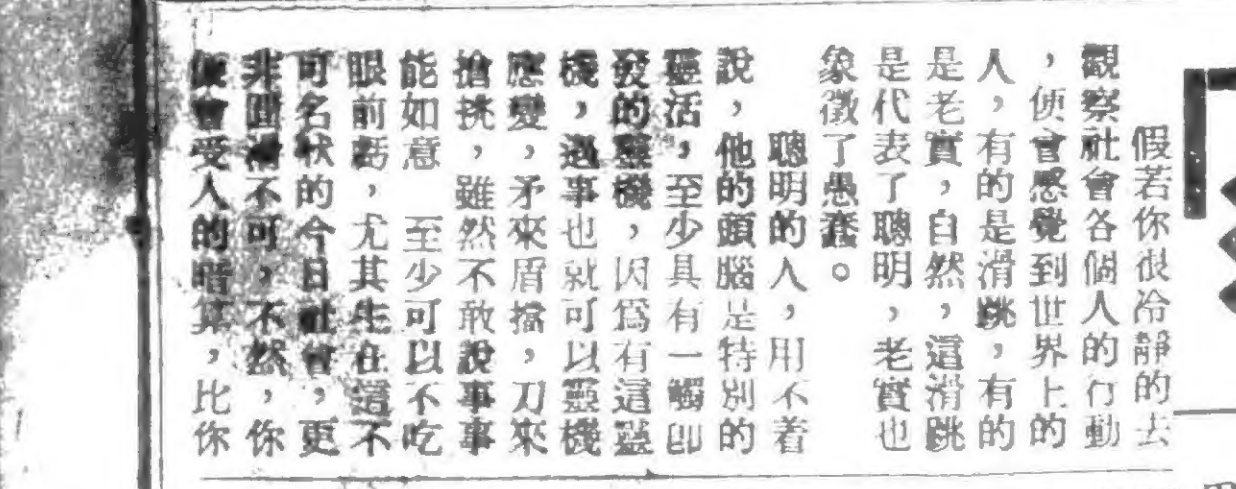 假若你很冷靜的去
觀察社會各個人的行動
，便會感覺到世界上的
人，有的是滑跳，有的
是老實，自然，這滑跳
是代表了聰明，老實也
象徵了愚蠢。
聰明的人，用不着
說，他的頭腦是特別的
靈活，至少具有一觸卽
發的靈機，因爲有這靈
機，遇事也就可以靈機
應變，矛來盾擋，刀來
搶挑，雖然不敢說事事
能如意　至少可以不吃
眼前虧，尤其生在這不
可名狀的今日社會，更
非圓滑不可，不然，你
便會受人的暗算，比你